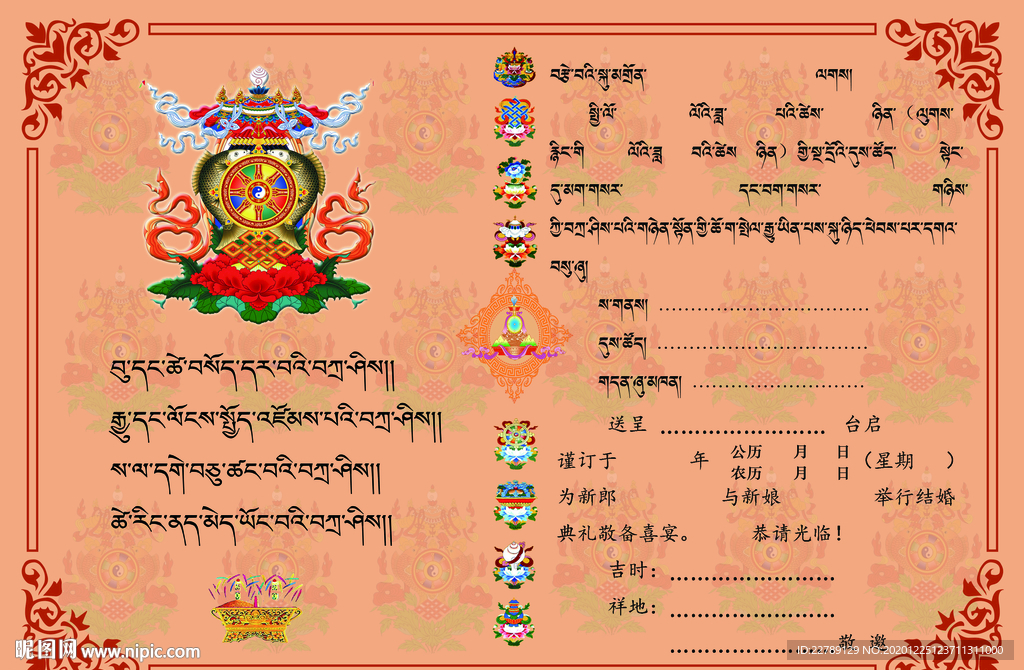 བུ་དང་ཚེ་བསོད་དར་བའི་བཀྲ་ཤིས།།
རྒྱུ་དང་ལོངས་སྤྱོད་འཛོམས་པའི་བཀྲ་ཤིས།།
ས་ལ་དགེ་བཅུ་ཚང་བའི་བཀྲ་ཤིས།།
ཚེ་རིང་ནད་མེད་ཡོང་བའི་བཀྲ་ཤིས།།
བརྩེ་བའི་སྐུ་མགྲོན་ ལགས།
སྤྱི་ལོ་ ལོའི་ཟླ་ པའི་ཚེས་ ཉིན་（ལུགས་
རྙིང་གི ལོའི་ཟླ བའི་ཚེས ཉིན）གྱི་སྔ་དྲོའི་དུས་ཚོད་ སྟེང་
དུ་མག་གསར་ དང་བག་གསར་ གཉིས་
ཀྱི་བཀྲ་ཤིས་པའི་གཉེན་སྟོན་གྱི་ཆོ་ག་སྤེལ་རྒྱུ་ཡིན་པས་སྐུ་ཉིད་ཕེབས་པར་དགའ་
བསུ་ཞུ།
ས་གནས། ……………………………
དུས་ཚོད། ……………………………
གདན་ཞུ་མཁན། ………………………
送呈 …………………… 台启
谨订于 年 公历 月 日 （星期 ）
农历 月 日
为新郎 与新娘 举行结婚
典礼敬备喜宴。 恭请光临！
吉时：……………………
祥地：……………………
…………………… 敬 邀
昵图网 www.nipic.com
ID:22789129 NO:20201225123711311000